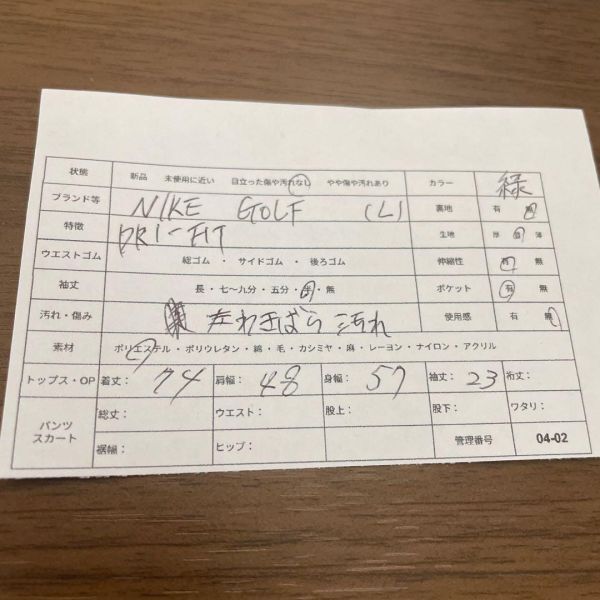 状態 新品 未使用に近い 目立った傷や汚れなし やや傷や汚れあり カラー 緑
ブランド等 NIKE GOLF (L) 裏地 有 無
特徴 DRI-FIT 生地 厚 普 薄
ウエストゴム 総ゴム ・ サイドゴム ・ 後ろゴム 伸縮性 有 無
袖丈 長・七〜九分・五分・半・無 ポケット 有 無
汚れ・傷み 左わきばら汚れ 使用感 有 無
素材 ポリエステル・ポリウレタン・綿・毛・カシミヤ・麻・レーヨン・ナイロン・アクリル
トップス・OP 着丈: 74 肩幅: 48 身幅: 57 袖丈: 23 裄丈:
パンツ スカート 総丈: ウエスト: 股上: 股下: ワタリ:
裾幅: ヒップ: 管理番号 04-02